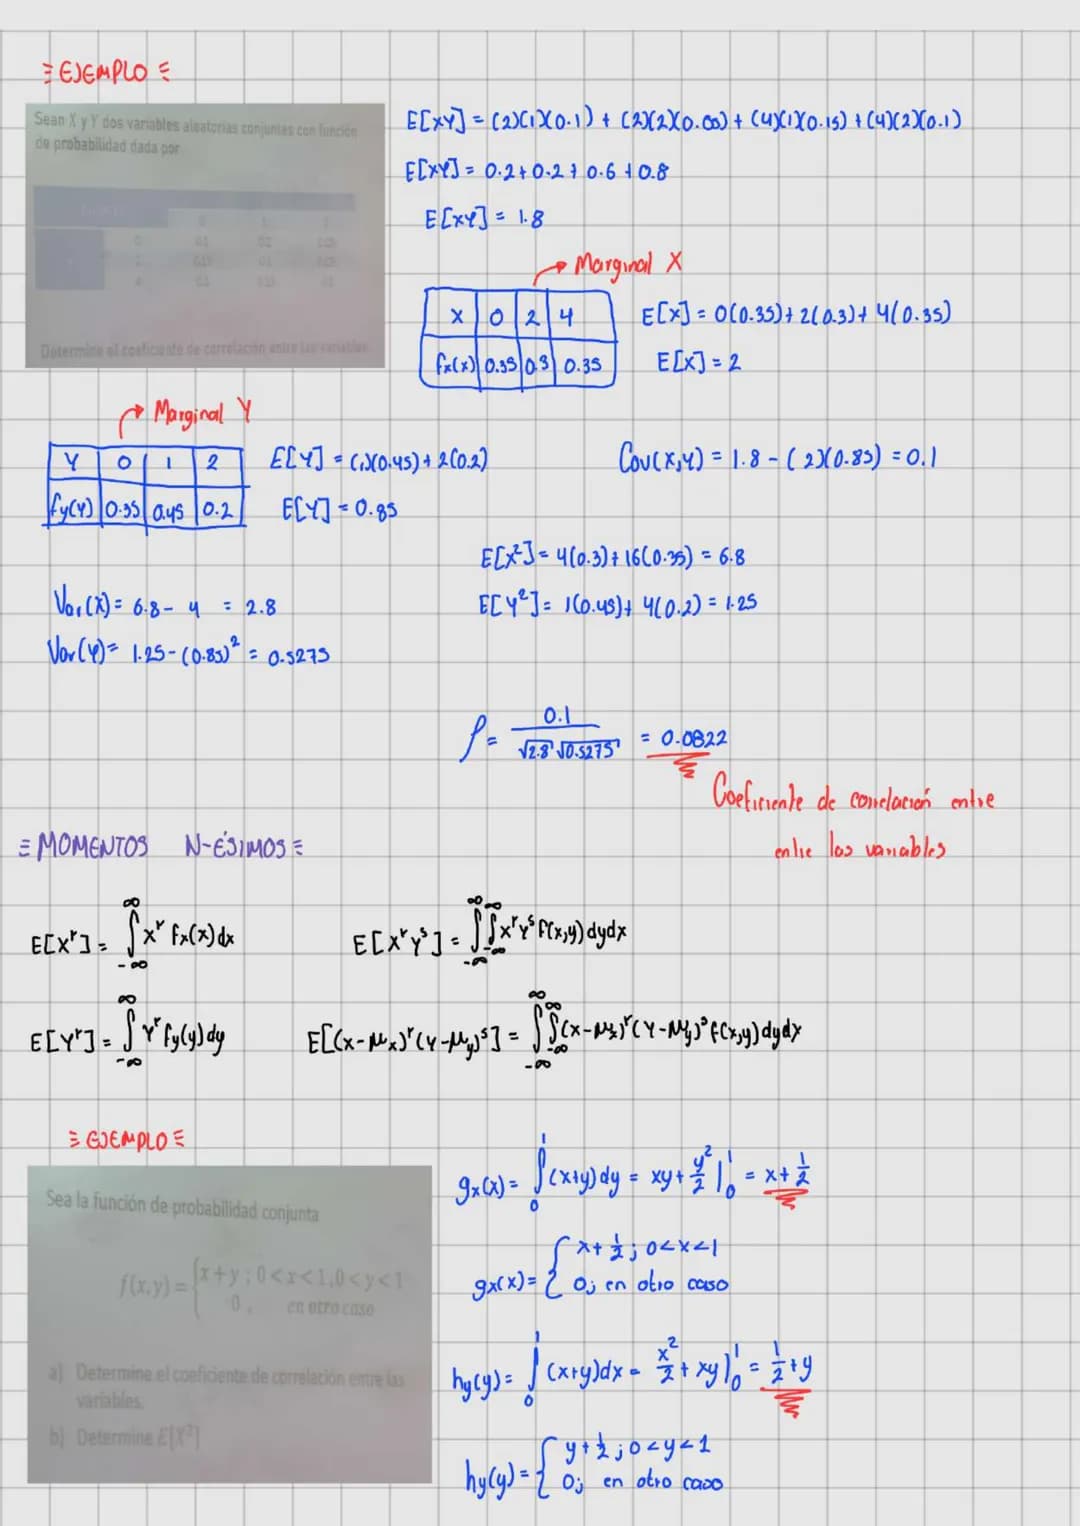 EJEMPLO
Sean X y Y dos variables aleatorias conjuntas con función
de probabilidad dada por
0 1 2
0 0.1 0.2 0.05
2 0.15 0.1 0.05
4 0.1 0.15 0.1
Determine el coeficiente de correlación entre las variables
E[XY] = (2)(1)(0.1) + (2)(2)(0.05) + (4)(1)(0.15) + (4)(2)(0.1)
E[XY] = 0.2 + 0.2 + 0.6 + 0.8
E[XY] = 1.8
Marginal X
X 0 2 4
fx(x) 0.35 0.3 0.35
E[X] = 0(0.35) + 2(0.3) + 4(0.35)
E[X] = 2
Marginal Y
Y 0 1 2
fy(y) 0.35 0.45 0.2
E[Y] = (1)(0.45) + 2(0.2)
E[Y] = 0.85
Cov(X,Y) = 1.8 - (2)(0.85) = 0.1
E[X²] = 4(0.3) + 16(0.35) = 6.8
E[Y²] = 1(0.45) + 4(0.2) = 1.25
Var(X) = 6.8 - 4 = 2.8
Var(Y) = 1.25 - (0.85)² = 0.5275
ρ = 0.1 / √2.8 √0.5275 = 0.0822
Coeficiente de correlación entre
entre las variables
MOMENTOS N-ÉSIMOS
E[Xʳ] = ∫_{-∞}^{∞} xʳ fx(x) dx
E[XʳYˢ] = ∫_{-∞}^{∞} ∫_{-∞}^{∞} xʳyˢ f(x,y) dydx
E[Yʳ] = ∫_{-∞}^{∞} yʳ fy(y) dy
E[(x-μx)ʳ(y-μy)ˢ] = ∫_{-∞}^{∞} ∫_{-∞}^{∞} (x-μx)ʳ(y-μy)ˢ f(x,y) dydx
EJEMPLO
Sea la función de probabilidad conjunta
f(x,y) = { x+y ; 0<x<1, 0<y<1
0, en otro caso
a) Determine el coeficiente de correlación entre las
variables.
b) Determine E[X²]
gx(x) = ∫_0^1 (x+y) dy = xy + y²/2 |_0^1 = x + 1/2
gx(x) = { x + 1/2 ; 0<x<1
0; en otro caso
hy(y) = ∫_0^1 (x+y) dx = x²/2 + xy |_0^1 = 1/2 + y
hy(y) = { y + 1/2 ; 0<y<1
0; en otro caso